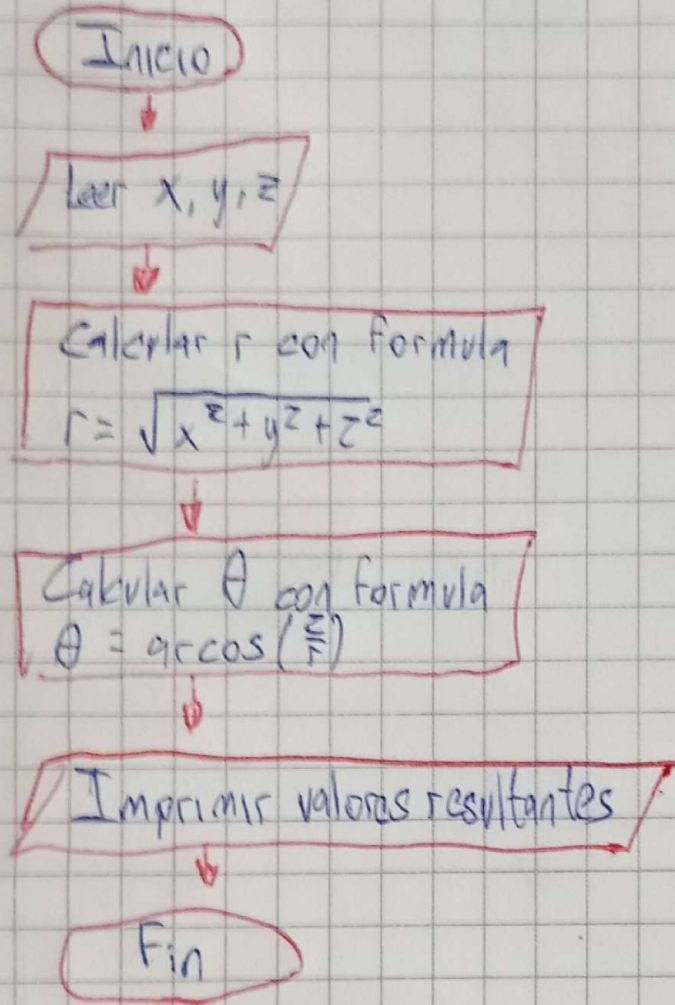 Inicio
Leer x, y, z
Calcular r con formula
r = √x² + y² + z²
Calcular θ con formula
θ = arcos(z/r)
Imprimir valores resultantes
Fin